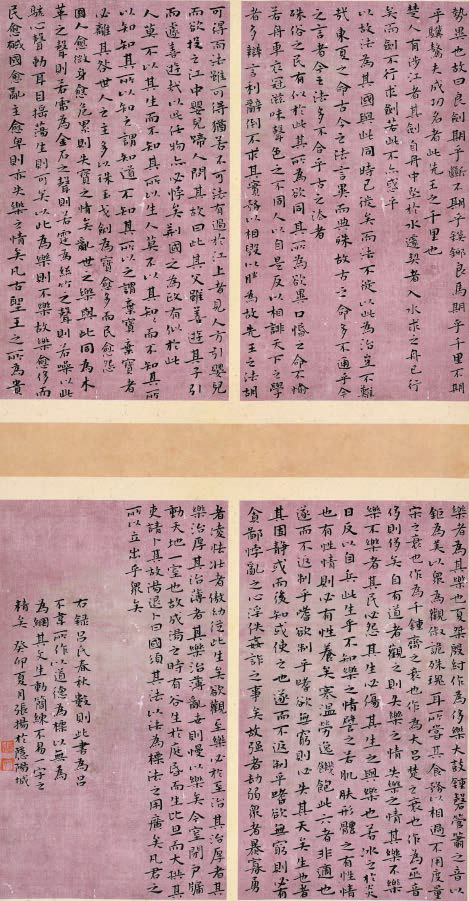 勢異也故曰良劍期乎斷不期乎鏌鋣良馬期乎千里不期
乎驥驁夫成功名者此先王之千里也
楚人有涉江者其劍自舟中墜於水遽契者入水求之舟已行
矣而劍不行求劍若此不亦惑乎
以故法為其國與此同時已徙矣而法不徙以此為治豈不難
哉東夏之命古今之法言異而典殊故古之命多不通乎今
之言者今之法多不合乎古之法者
殊俗之民有似於此其所為欲同其所為欲異口惛之命不愉
若舟車衣冠滋味聲色之不同人以自是反以相誹天下之學
者多辯言利辭倒不求其實務以相毀以勝為故先王之法胡
可得而法雖可得猶若不可法有過於江上者見人方引嬰兒
而欲投之江中嬰兒啼人問其故曰此其父雖善游其子引
而遽善游哉以此任物亦必悖矣荊國之為政有似於此
人莫不以其生而不知其所以生人莫不以其知而不知其所
以知知其所以知之謂知道不知其所以知之謂棄寶棄寶者
必離其咎世人之主多以珠玉戈劍為寶愈多而民愈怨
國人愈微身愈危累則失寶情矣亂世之樂與此同為木
革之聲則若雷為金石之聲則若霆為絲竹之聲則若噪以此
駭心聲動耳目搖蕩生則可矣以此為樂則不樂故樂愈侈而
民愈鬱國愈亂主愈卑則亦失樂之情矣凡古聖王之所為貴
樂者為其樂也夏桀殷紂作為侈樂大鼓鐘磬管簫之音以
鉅為美以衆為觀俶詭殊瑰耳所嘗其食務以相過不用度量
宋之衰也作為千鍾齊之衰也作為大呂楚之衰也作為巫音
侈則侈矣自有道者觀之則失樂之情失樂之情其樂不樂
樂不樂者其民必怨其生必傷其生之與樂也若冰之於炎
日反以自兵此生乎不知樂之情譬之若肌膚形體之有性情
也有性情則必有性養矣寒溫勞逸饑飽此六者非適也
遂而不返制乎嗜欲制乎嗜欲無窮則必失其天矣生也者
其固靜或而後知或使之也遂而不返制乎嗜欲無窮則必有
貪鄙悖亂之心淫佚姦詐之事矣故強者劫弱衆者暴寡勇
者凌怯壯者傲幼從此生矣欲觀至樂必於至治其治厚者其
樂治厚其治薄者其樂治薄亂世則慢以樂矣今窒閉戶牖
動天地一室也故成湯之時有谷生於庭昏而生比旦而大拱其
吏請卜其故湯退卜曰國須其法以法為標法之用廣矣凡君之
所以立出乎衆矣
右録呂氏春秋數則此書為呂
不韋所作以道德為標以無為
為綱其文生動簡練不易一字之
精矣 癸卯夏月張揚於隱陽城